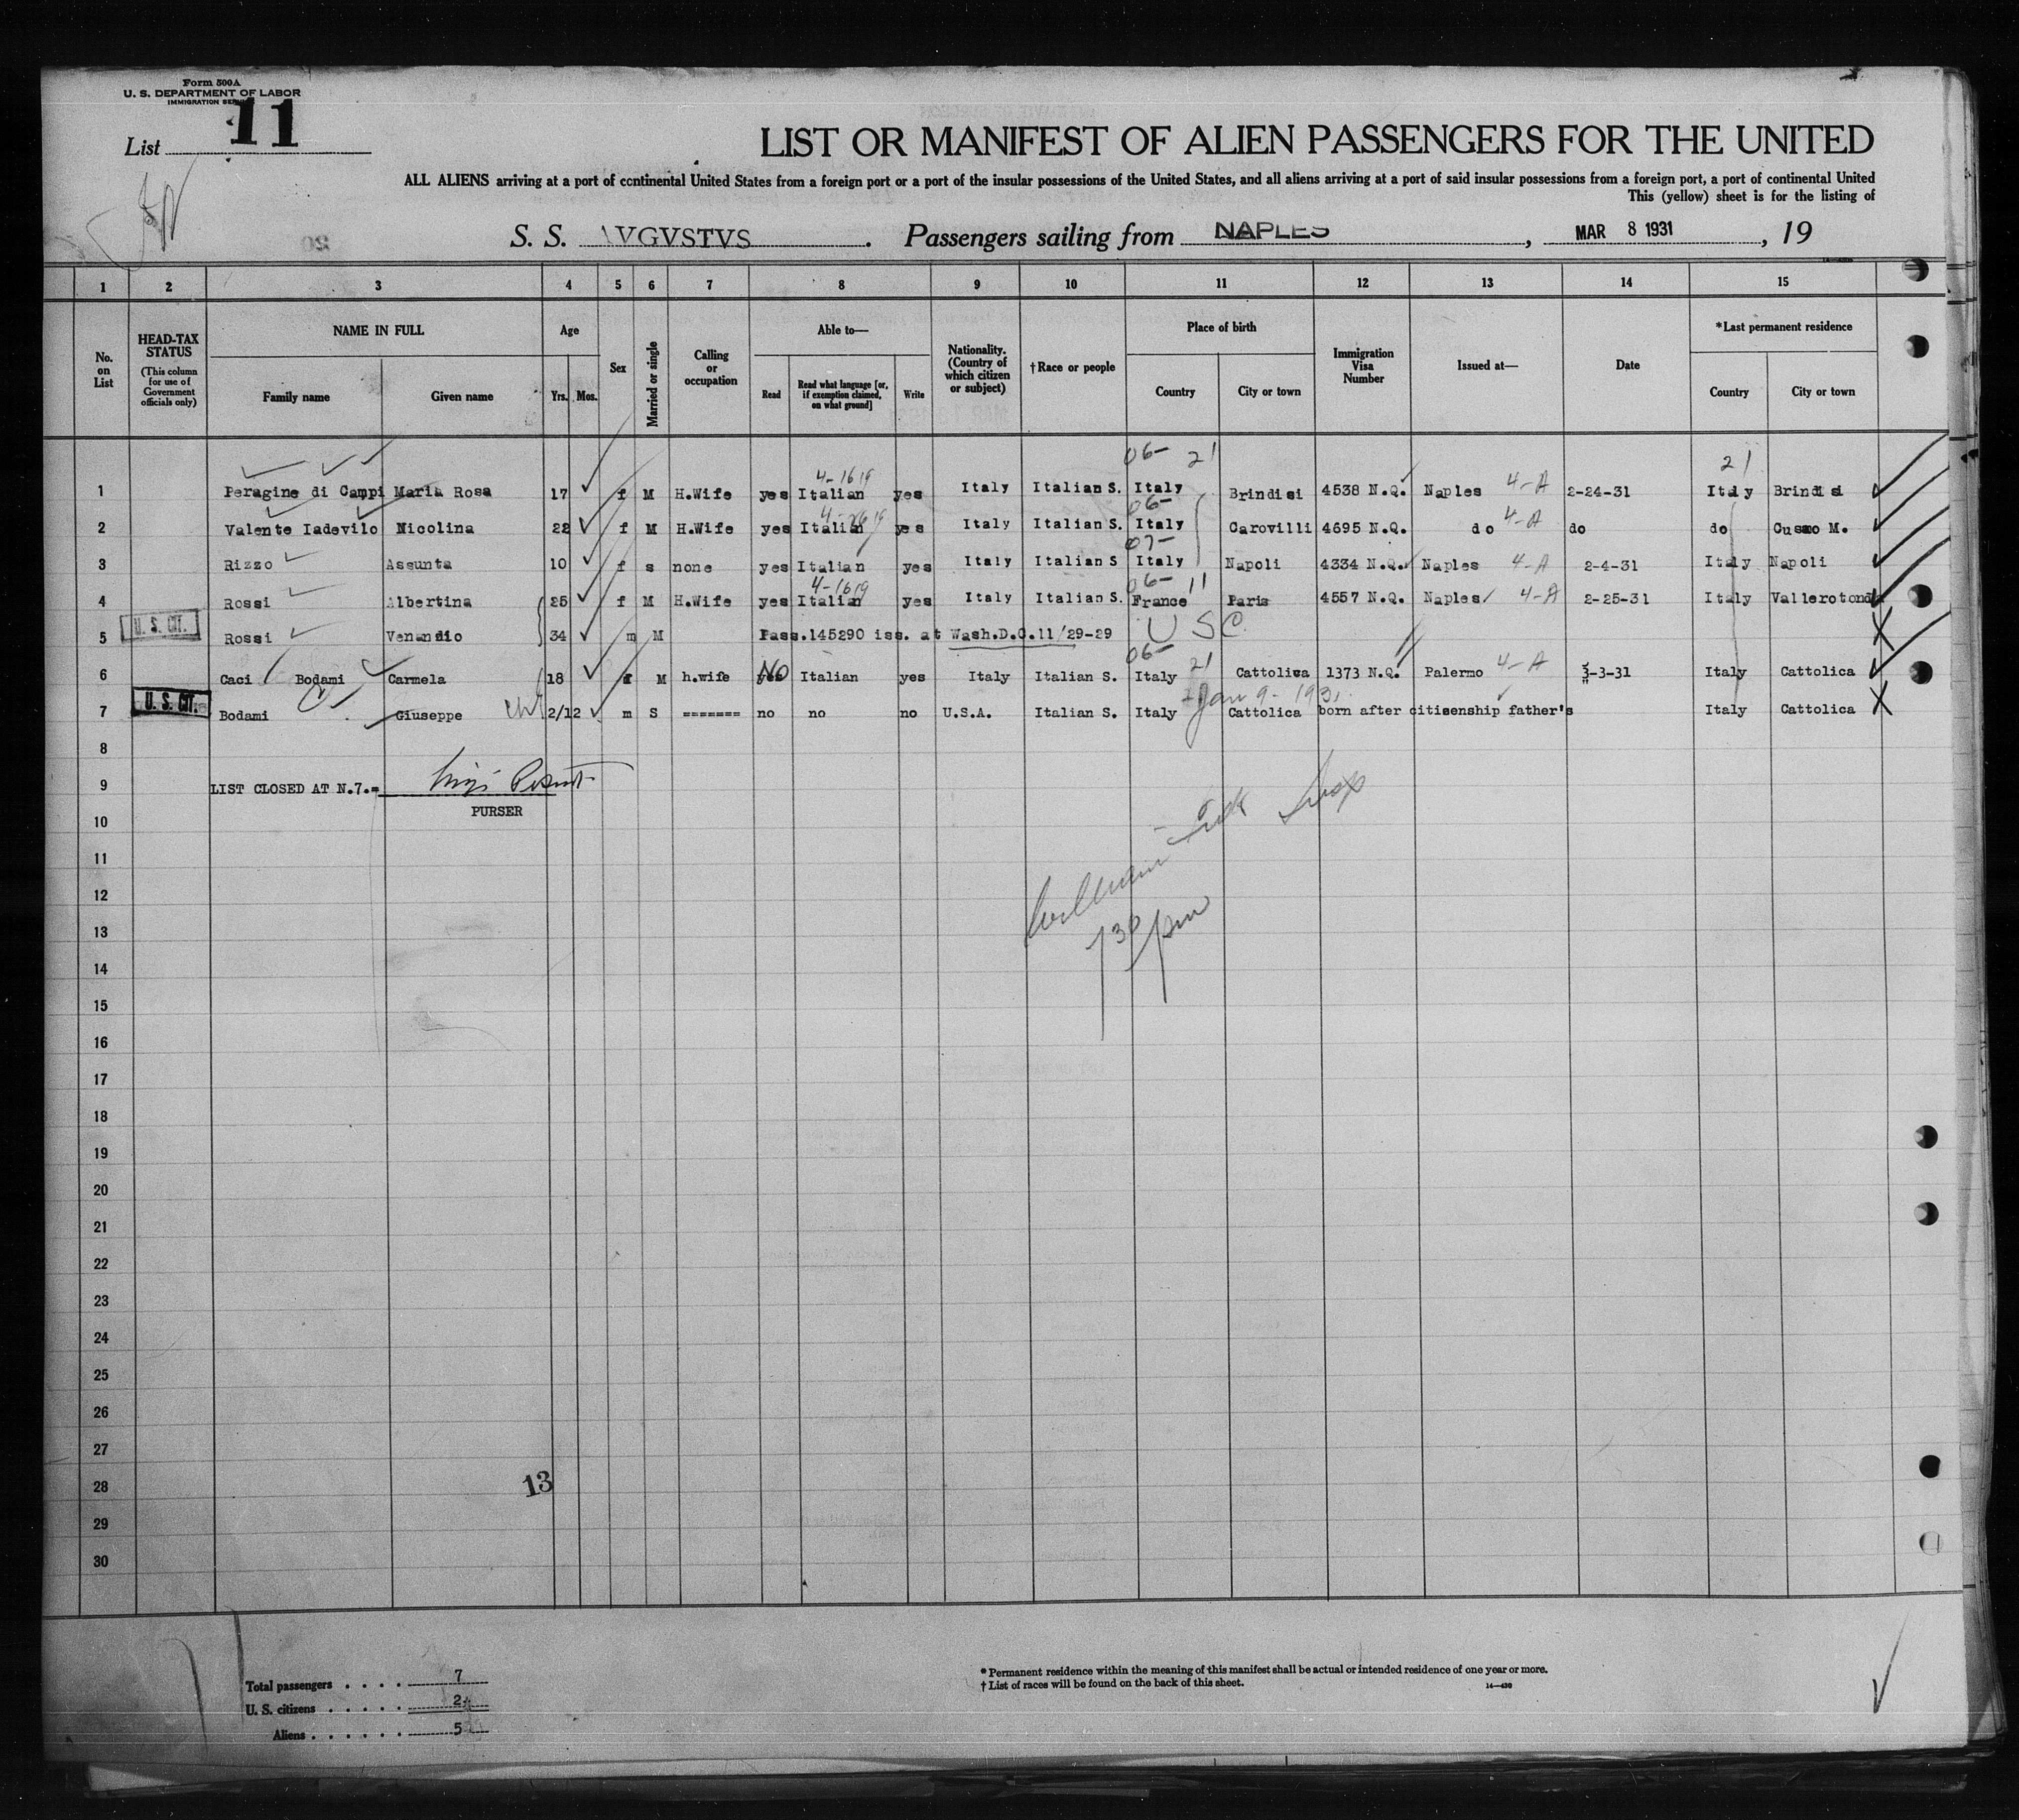 Form 500A
U. S. DEPARTMENT OF LABOR
IMMIGRATION
List 11
LIST OR MANIFEST OF ALIEN PASSENGERS FOR THE UNITED
ALL ALIENS arriving at a port of continental United States from a foreign port or a port of the insular possessions of the United States, and all aliens arriving at a port of said insular possessions from a foreign port, a port of continental United
This (yellow) sheet is for the listing of
S. S. VGVSTVS . Passengers sailing from NAPLES , MAR 8 1931 , 19
1 2 3 4 5 6 7 8 9 10 11 12 13 14 15
No. on List
HEAD-TAX STATUS
(This column for use of Government officials only)
NAME IN FULL
Family name Given name
Age
Yrs. Mos.
Sex
Married or single
Calling or occupation
Able to—
Read Read what language [or, if exemption claimed, on what ground] Write
Nationality. (Country of which citizen or subject)
† Race or people
Place of birth
Country City or town
Immigration Visa Number
Issued at—
Date
*Last permanent residence
Country City or town
06- 21 21
4-1619
1 Peragine di Campi Maria Rosa 17 f M H.Wife yes Italian yes Italy Italian S. Italy Brindisi 4538 N.Q. Naples 4-A 2-24-31 Italy Brindisi
06-
2 Valente Iadevilo Nicolina 22 f M H.Wife yes Italian yes Italy Italian S. Italy Carovilli 4695 N.Q. do 4-A do do M.
07-
3 Rizzo Assunta 10 f s none yes Italian yes Italy Italian S Italy Napoli 4334 N.Q. Naples 4-A 2-4-31 Italy Napoli
4-1619 06- 11
4 Rossi Albertina 25 f M H.Wife yes Italian yes Italy Italian S. France Paris 4557 N.Q. Naples 4-A 2-25-31 Italy Vallerotonda
U. S. CIT.
5 Rossi Venandio 34 m M Pass.145290 iss. at Wash.D.C.11/29-29 U S C
06- 21
6 Caci Bodami Carmela 18 f M h.wife No Italian yes Italy Italian S. Italy Cattolica 1373 N.Q. Palermo 4-A 3-3-31 Italy Cattolica
U. S. CIT. Jan 9- 1931.
7 Bodami Giuseppe 2/12 m S ======= no no no U.S.A. Italian S. Italy Cattolica born after citisenship father's Italy Cattolica
8
9 LIST CLOSED AT N.7.=
PURSER
10
11
12
13
730 pm
14
15
16
17
18
19
20
21
22
23
24
25
26
27
28 13
29
30
Total passengers . . . . 7
U. S. citizens . . . . . 2
Aliens . . . . . . 5
* Permanent residence within the meaning of this manifest shall be actual or intended residence of one year or more.
† List of races will be found on the back of this sheet. 14—430